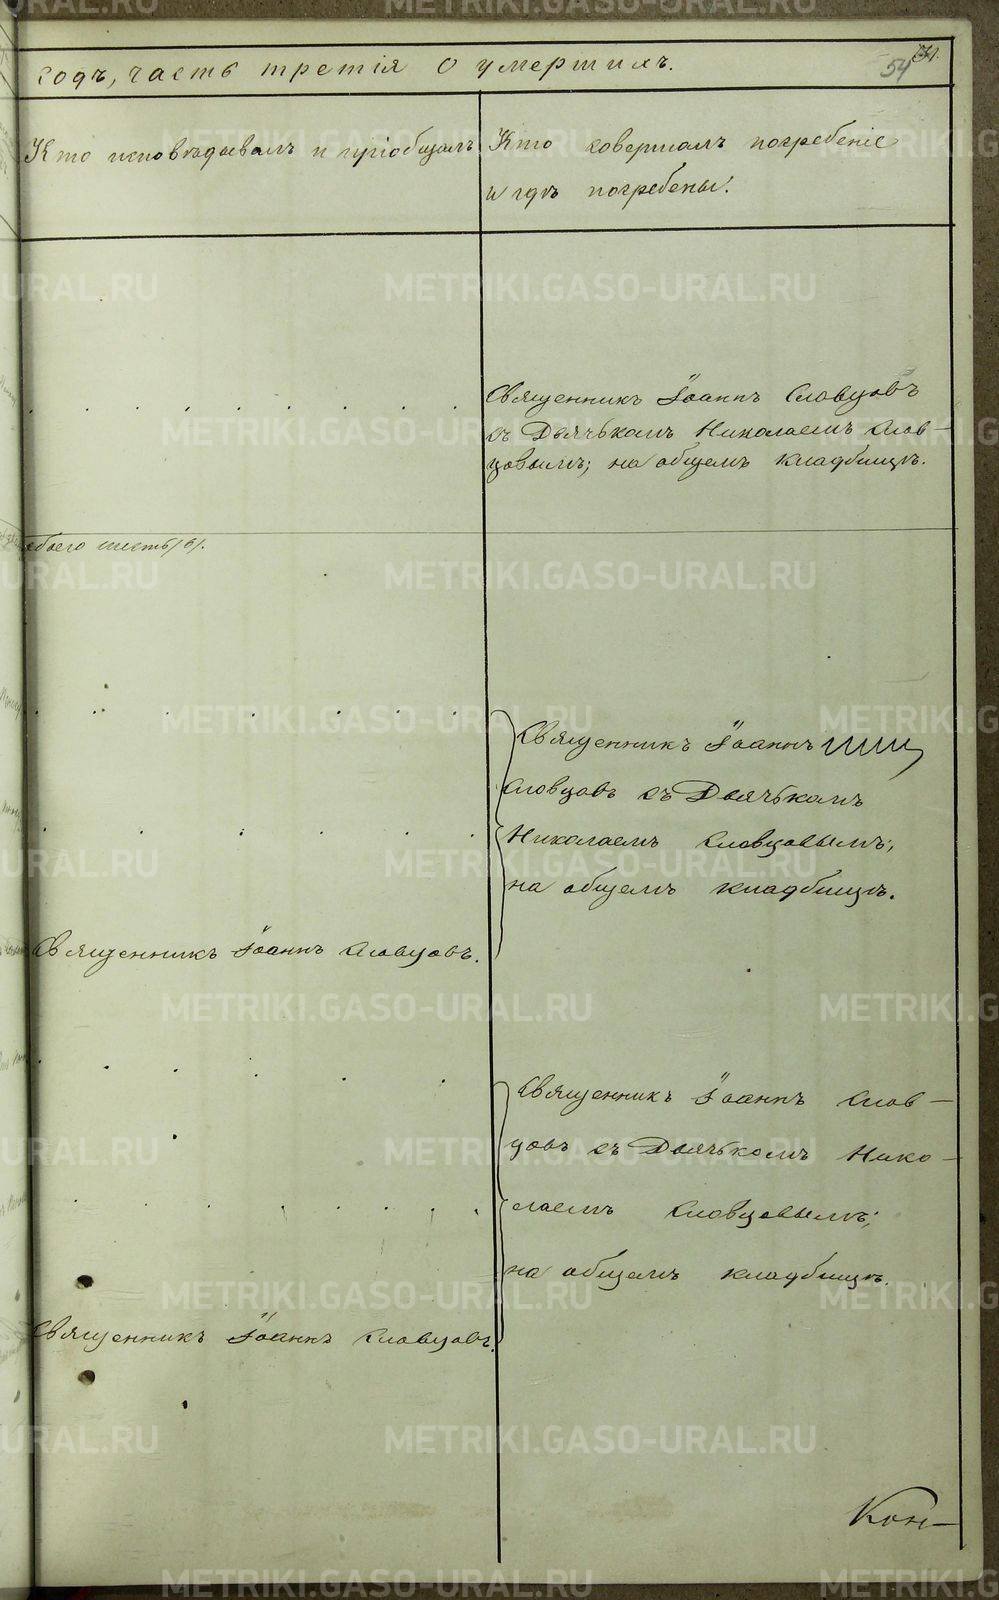 годъ, часть третія о умершихъ.
54
Кто исповѣдывалъ и пріобщалъ
Кто совершалъ погребеніе
и гдѣ погребены.
Священникъ Іоаннъ Словцовъ
съ Дьячькомъ Николаемъ Слов-
цовымъ; на общемъ кладбищѣ.
обоего шесть /6/.
Священникъ Іоаннъ
Словцовъ съ Дьячькомъ
Николаемъ Словцовымъ;
на общемъ кладбищѣ.
Священникъ Іоаннъ Словцовъ.
Священникъ Іоаннъ Слов-
цовъ съ Дьячькомъ Нико-
лаемъ Словцовымъ;
на общемъ кладбищѣ.
Священникъ Іоаннъ Словцовъ.
Кон-
METRIKI.GASO-URAL.RU